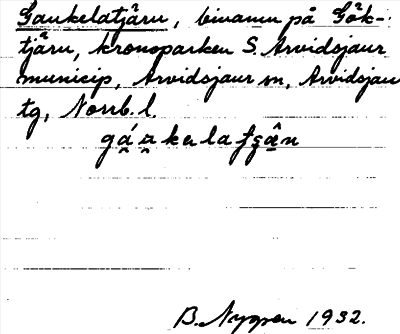 Gaukelatjåru, binamn på Gök-
tjåru, kronoparken S. Arvidsjaur
municip, Arvidsjaur sn, Arvidsjau
tg, Norrb. l.
B. Nygren 1932.